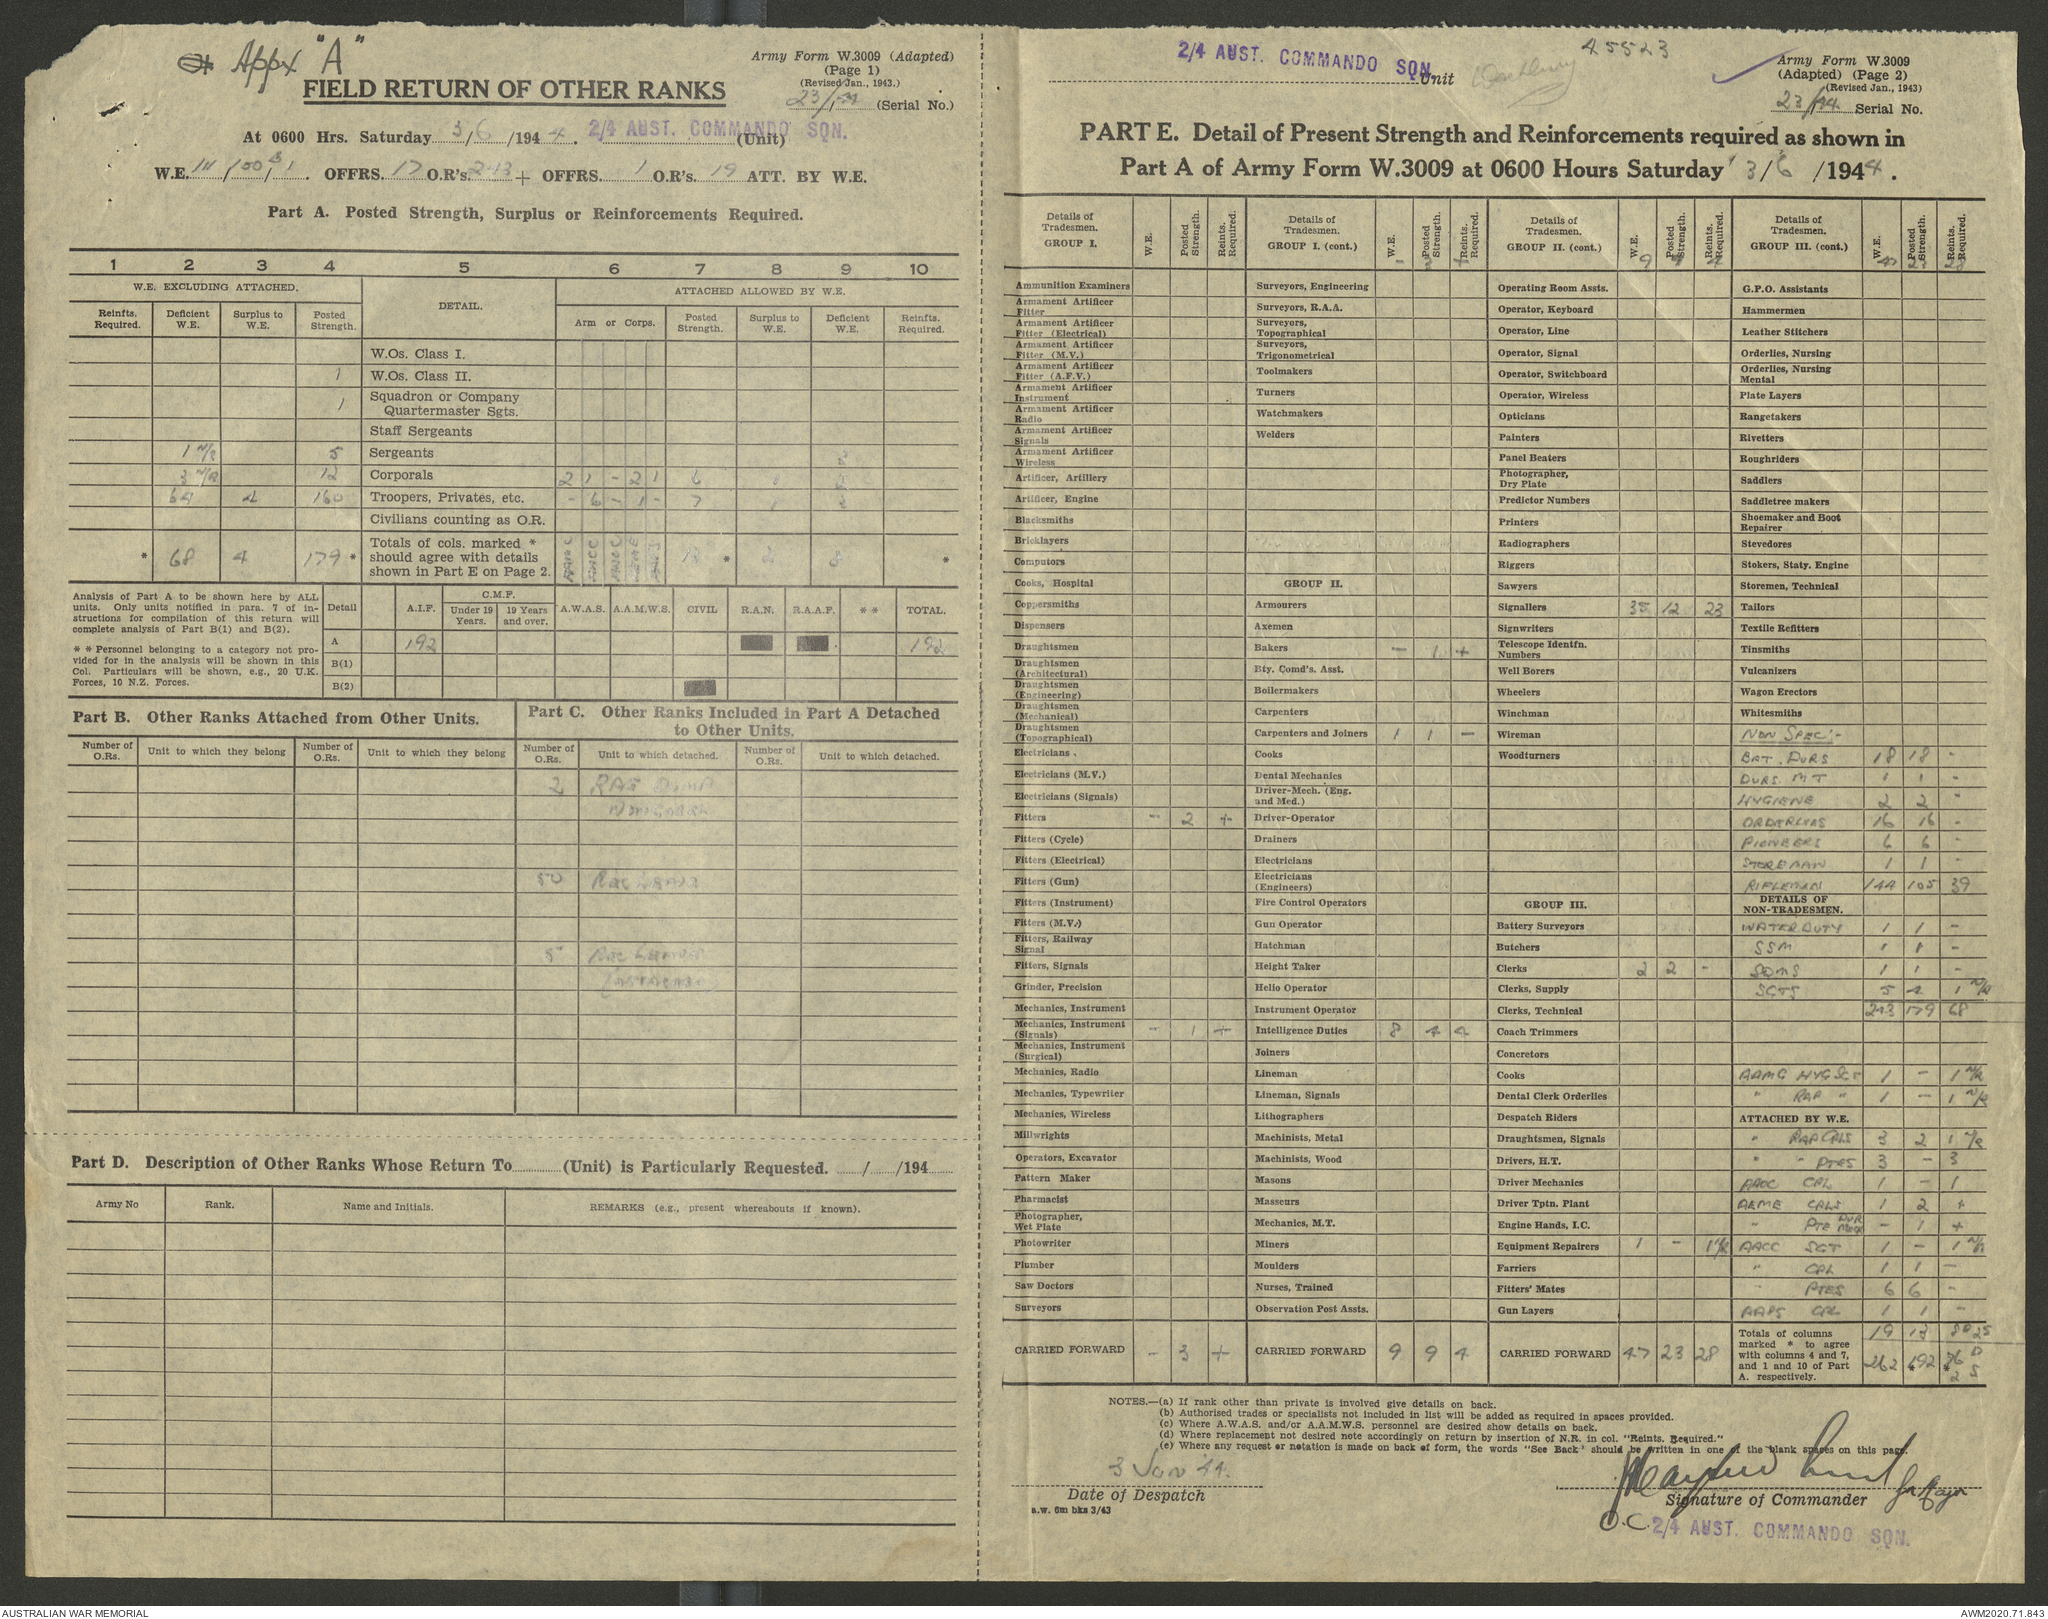 Appx "A"
Army Form W.3009 (Adapted)
(Page 1)
(Revised Jan., 1943.)
FIELD RETURN OF OTHER RANKS
23/44 (Serial No.)
At 0600 Hrs. Saturday 3/6/1944. 2/4 AUST. COMMANDO SQN. (Unit)
W.E. III/100 /1. OFFRS. 17 O.R's. 243 + OFFRS. 1 O.R's. 19 ATT. BY W.E.
Part A. Posted Strength, Surplus or Reinforcements Required.
1 2 3 4 5 6 7 8 9 10
W.E. EXCLUDING ATTACHED. DETAIL. ATTACHED ALLOWED BY W.E.
Reinfts. Required. Deficient W.E. Surplus to W.E. Posted Strength. Arm or Corps. Posted Strength. Surplus to W.E. Deficient W.E. Reinfts. Required.
W.Os. Class I.
1 W.Os. Class II.
1 Squadron or Company Quartermaster Sgts.
Staff Sergeants
1 N/R 5 Sergeants
3 N/R 12 Corporals 2 1 - 2 1 6
64 4 160 Troopers, Privates, etc. - 6 - 1 - 7
Civilians counting as O.R.
* 68 4 179 * Totals of cols. marked * should agree with details shown in Part E on Page 2. 13 * 2 8 *
Analysis of Part A to be shown here by ALL units. Only units notified in para. 7 of instructions for compilation of this return will complete analysis of Part B(1) and B(2).
* * Personnel belonging to a category not provided for in the analysis will be shown in this Col. Particulars will be shown, e.g., 20 U.K. Forces, 10 N.Z. Forces.
Detail A.I.F. C.M.F. Under 19 Years. 19 Years and over. A.W.A.S. A.A.M.W.S. CIVIL R.A.N. R.A.A.F. * * TOTAL.
A 192 192
B(1)
B(2)
Part B. Other Ranks Attached from Other Units.
Part C. Other Ranks Included in Part A Detached to Other Units.
Number of O.Rs. Unit to which they belong Number of O.Rs. Unit to which they belong Number of O.Rs. Unit to which detached. Number of O.Rs. Unit to which detached.
2 RAE DUMP
50 REC LEAVE
5 REC LEAVE
Part D. Description of Other Ranks Whose Return To (Unit) is Particularly Requested. / /194
Army No Rank. Name and Initials. REMARKS (e.g., present whereabouts if known).
2/4 AUST. COMMANDO SQN. Unit
45523
Army Form W.3009
(Adapted) (Page 2)
(Revised Jan., 1943)
23/44 Serial No.
PART E. Detail of Present Strength and Reinforcements required as shown in
Part A of Army Form W.3009 at 0600 Hours Saturday 3/6/1944.
Details of Tradesmen. GROUP I. W.E. Posted Strength. Reints. Required.
Ammunition Examiners
Armament Artificer Fitter
Armament Artificer Fitter (Electrical)
Armament Artificer Fitter (M.V.)
Armament Artificer Fitter (A.F.V.)
Armament Artificer Instrument
Armament Artificer Radio
Armament Artificer Signals
Armament Artificer Wireless
Artificer, Artillery
Artificer, Engine
Blacksmiths
Bricklayers
Computors
Cooks, Hospital
Coppersmiths
Dispensers
Draughtsmen
Draughtsmen (Architectural)
Draughtsmen (Engineering)
Draughtsmen (Mechanical)
Draughtsmen (Topographical)
Electricians
Electricians (M.V.)
Electricians (Signals)
Fitters - 2 +
Fitters (Cycle)
Fitters (Electrical)
Fitters (Gun)
Fitters (Instrument)
Fitters (M.V.)
Fitters, Railway Signal
Fitters, Signals
Grinder, Precision
Mechanics, Instrument
Mechanics, Instrument (Signals) - 1 +
Mechanics, Instrument (Surgical)
Mechanics, Radio
Mechanics, Typewriter
Mechanics, Wireless
Millwrights
Operators, Excavator
Pattern Maker
Pharmacist
Photographer, Wet Plate
Photowriter
Plumber
Saw Doctors
Surveyors
CARRIED FORWARD - 3 +
Details of Tradesmen. GROUP I. (cont.) W.E. Posted Strength. Reints. Required.
- 3 +
Surveyors, Engineering
Surveyors, R.A.A.
Surveyors, Topographical
Surveyors, Trigonometrical
Toolmakers
Turners
Watchmakers
Welders
GROUP II.
Armourers
Axemen
Bakers - 1 +
Bty. Comd's. Asst.
Boilermakers
Carpenters
Carpenters and Joiners 1 1 -
Cooks
Dental Mechanics
Driver-Mech. (Eng. and Med.)
Driver-Operator
Drainers
Electricians
Electricians (Engineers)
Fire Control Operators
Gun Operator
Hatchman
Height Taker
Helio Operator
Instrument Operator
Intelligence Duties 8 4 4
Joiners
Lineman
Lineman, Signals
Lithographers
Machinists, Metal
Machinists, Wood
Masons
Masseurs
Mechanics, M.T.
Miners
Moulders
Nurses, Trained
Observation Post Assts.
CARRIED FORWARD 9 9 4
Details of Tradesmen. GROUP II. (cont.) W.E. Posted Strength. Reints. Required.
9 9 4
Operating Room Assts.
Operator, Keyboard
Operator, Line
Operator, Signal
Operator, Switchboard
Operator, Wireless
Opticians
Painters
Panel Beaters
Photographer, Dry Plate
Predictor Numbers
Printers
Radiographers
Riggers
Sawyers
Signallers 35 12 23
Signwriters
Telescope Identfn. Numbers
Well Borers
Wheelers
Winchman
Wireman
Woodturners
GROUP III.
Battery Surveyors
Butchers
Clerks 2 2 -
Clerks, Supply
Clerks, Technical
Coach Trimmers
Concretors
Cooks
Dental Clerk Orderlies
Despatch Riders
Draughtsmen, Signals
Drivers, H.T.
Driver Mechanics
Driver Tptn. Plant
Engine Hands, I.C.
Equipment Repairers 1 - 1 N/R
Farriers
Fitters' Mates
Gun Layers
CARRIED FORWARD 47 23 28
Details of Tradesmen. GROUP III. (cont.) W.E. Posted Strength. Reints. Required.
47 23 28
G.P.O. Assistants
Hammermen
Leather Stitchers
Orderlies, Nursing
Orderlies, Nursing Mental
Plate Layers
Rangetakers
Rivetters
Roughriders
Saddlers
Saddletree makers
Shoemaker and Boot Repairer
Stevedores
Stokers, Staty. Engine
Storemen, Technical
Tailors
Textile Refitters
Tinsmiths
Vulcanizers
Wagon Erectors
Whitesmiths
NON SPEC:-
BAT. DVRS 18 18 -
DVRS. MT 1 1 -
HYGIENE 2 2 -
ORDERLIES 16 16 -
PIONEERS 6 6 -
STOREMAN 1 1 -
RIFLEMAN 144 105 39
DETAILS OF NON-TRADESMEN.
WATER DUTY 1 1 -
SSM 1 1 -
SQMS 1 1 -
SGTS 5 4 1 N/R
243 179 68
AAMC HYG SGT 1 - 1 N/R
" RAP " 1 - 1 N/R
ATTACHED BY W.E.
" RAP CPLS 3 2 1 N/R
" " PTES 3 - 3
AAOC CPL 1 - 1
AEME CPLS 1 2 +
" PTE DVR MECH - 1 +
AACC SGT 1 - 1 N/R
" CPL 1 1 -
" PTES 6 6 -
AAPS CPL 1 1 -
19 13
Totals of columns marked * to agree with columns 4 and 7, and 1 and 10 of Part A. respectively. 262 *192 *76 D 2 S
NOTES.—(a) If rank other than private is involved give details on back.
(b) Authorised trades or specialists not included in list will be added as required in spaces provided.
(c) Where A.W.A.S. and/or A.A.M.W.S. personnel are desired show details on back.
(d) Where replacement not desired note accordingly on return by insertion of N.R. in col. "Reints. Required."
(e) Where any request or notation is made on back of form, the words "See Back" should be written in one of the blank spaces on this page.
3 Jun 44.
Date of Despatch
a.w. 6m bks 3/43
for Major
Signature of Commander
O.C. 2/4 AUST. COMMANDO SQN.
AUSTRALIAN WAR MEMORIAL
AWM2020.71.843